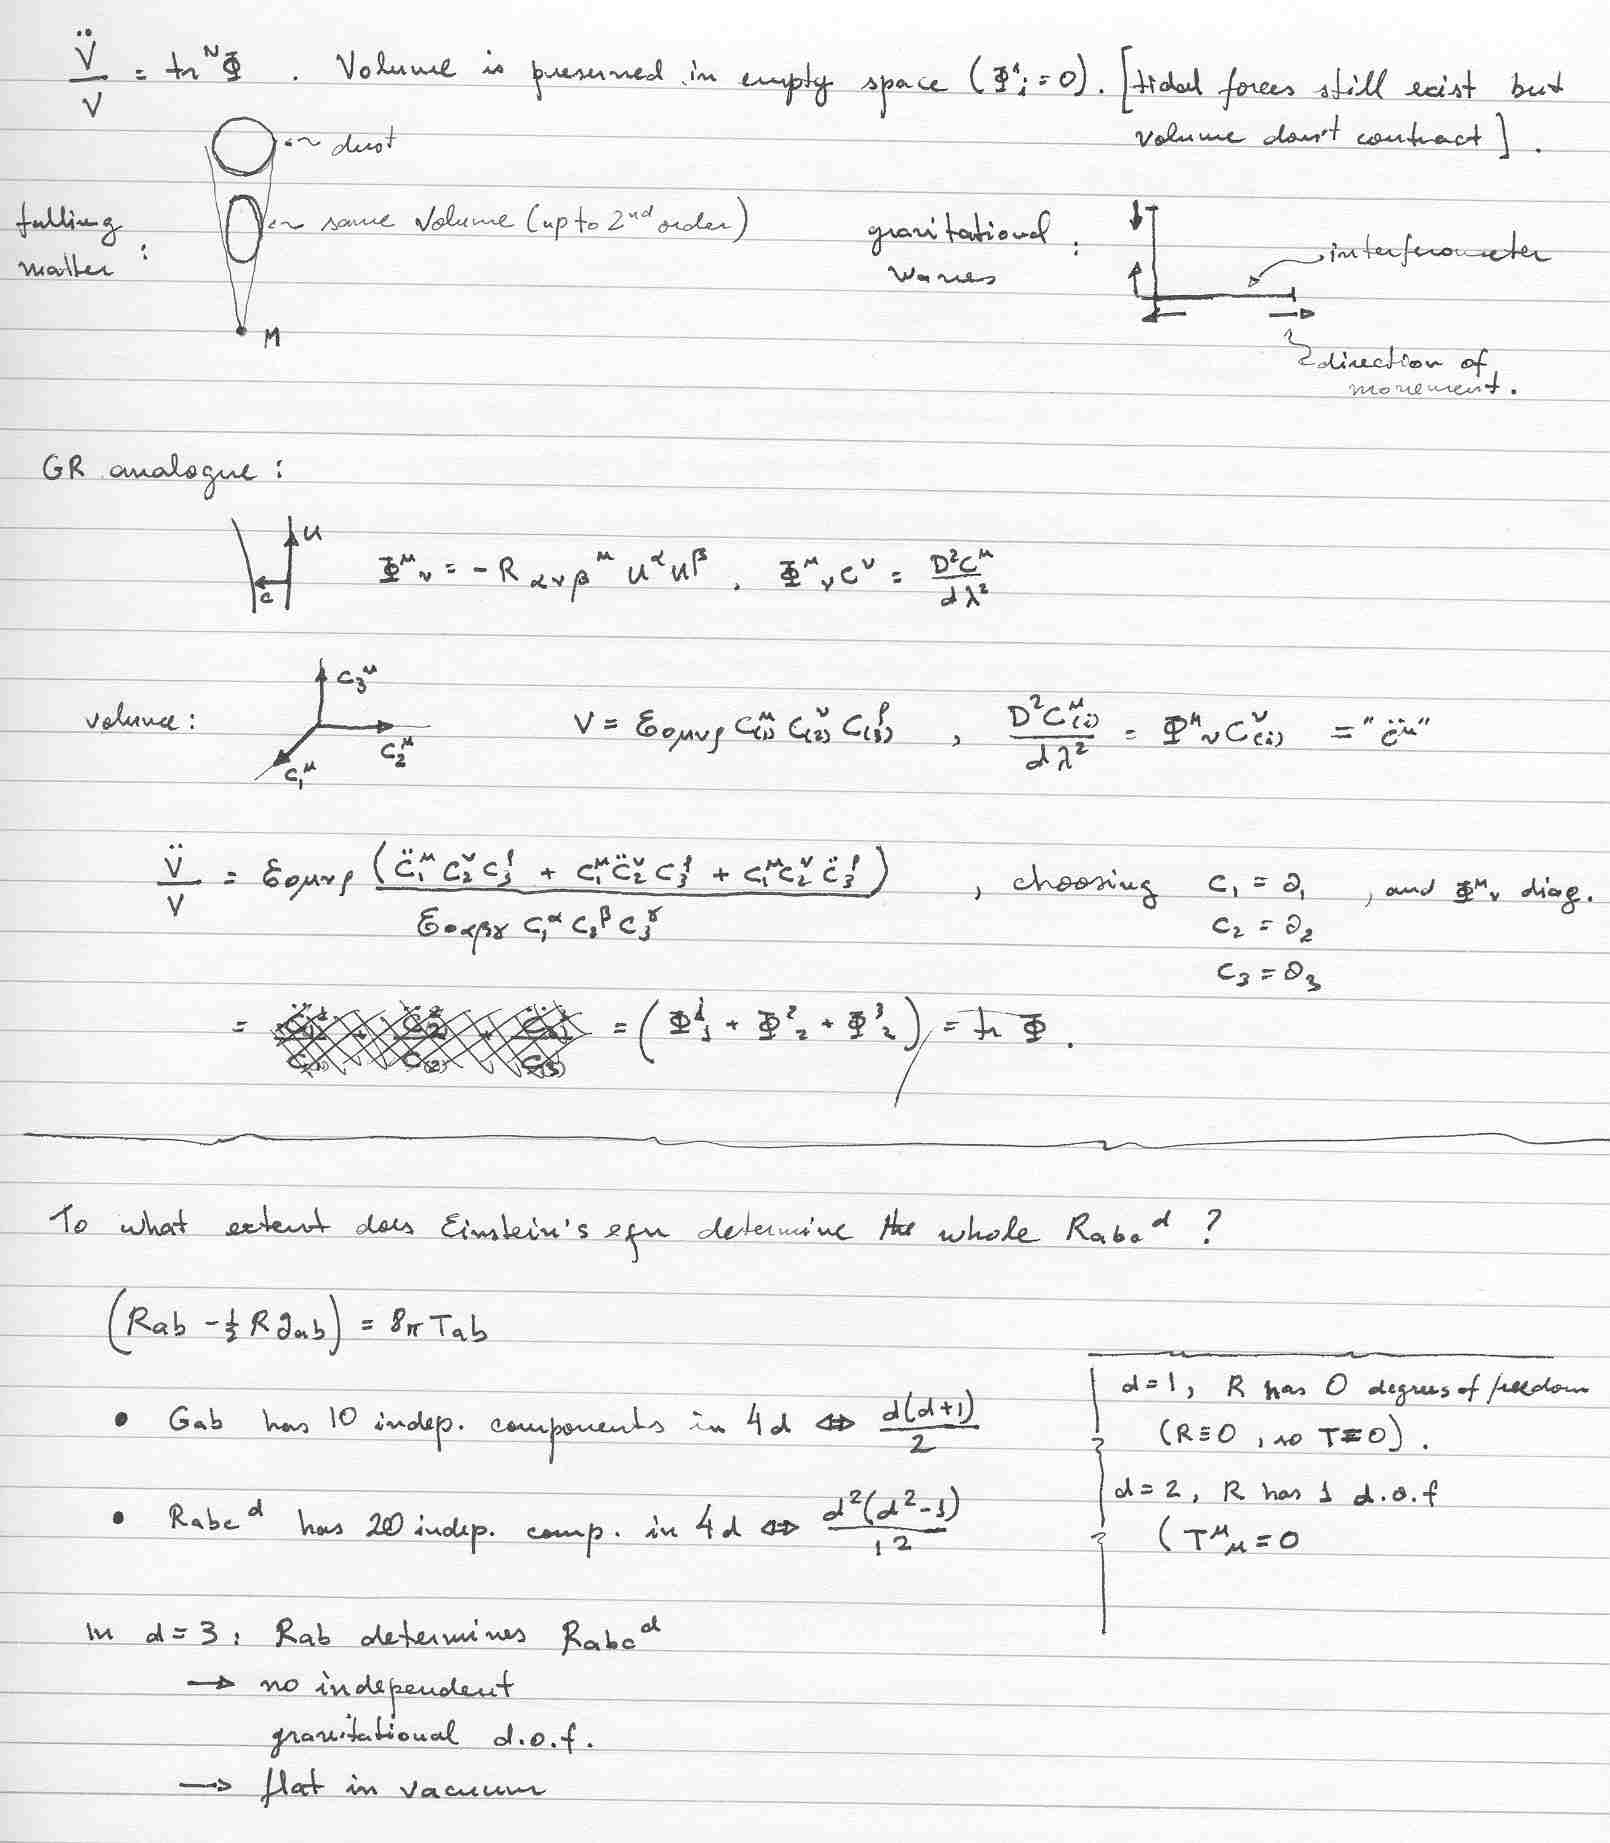 V̈/V = tr ᴺΦ . Volume is preserved in empty space (Φⁱᵢ = 0). [tidal forces still exist but
volume don't contract].
dust
falling matter:
same volume (up to 2nd order)
M
gravitational waves :
interferometer
direction of movement.
GR analogue:
u
c
Φ^μ_ν = - R_{ανβ}^μ u^α u^β . Φ^μ_ν c^ν = D²c^μ/dλ²
volume:
c₃^μ
c₂^μ
c₁^μ
V = ε_{0μνρ} c^μ_{(1)} c^ν_{(2)} c^ρ_{(3)} , D²c^μ_{(i)}/dλ² = Φ^μ_ν c^ν_{(i)} = "c̈^μ"
V̈/V = ε_{0μνρ} (c̈₁^μ c₂^ν c₃^ρ + c₁^μ c̈₂^ν c₃^ρ + c₁^μ c₂^ν c̈₃^ρ) / ε_{0αβγ} c₁^α c₂^β c₃^γ , choosing c₁ = ∂₁ , and Φ^μ_ν diag.
c₂ = ∂₂
c₃ = ∂₃
= = (Φ¹₁ + Φ²₂ + Φ³₂) = tr Φ .
To what extent does Einstein's eqn determine the whole R_{abc}^d ?
(Rab - ½ R gab) = 8π Tab
• Gab has 10 indep. components in 4d ⇔ d(d+1)/2
• R_{abc}^d has 20 indep. comp. in 4d ⇔ d²(d²-1)/12
d=1, R has 0 degrees of freedom
(R≡0, so T≡0).
d=2, R has 1 d.o.f
(T^μ_μ = 0
In d=3: Rab determines R_{abc}^d
→ no independent
gravitational d.o.f.
→ flat in vacuum